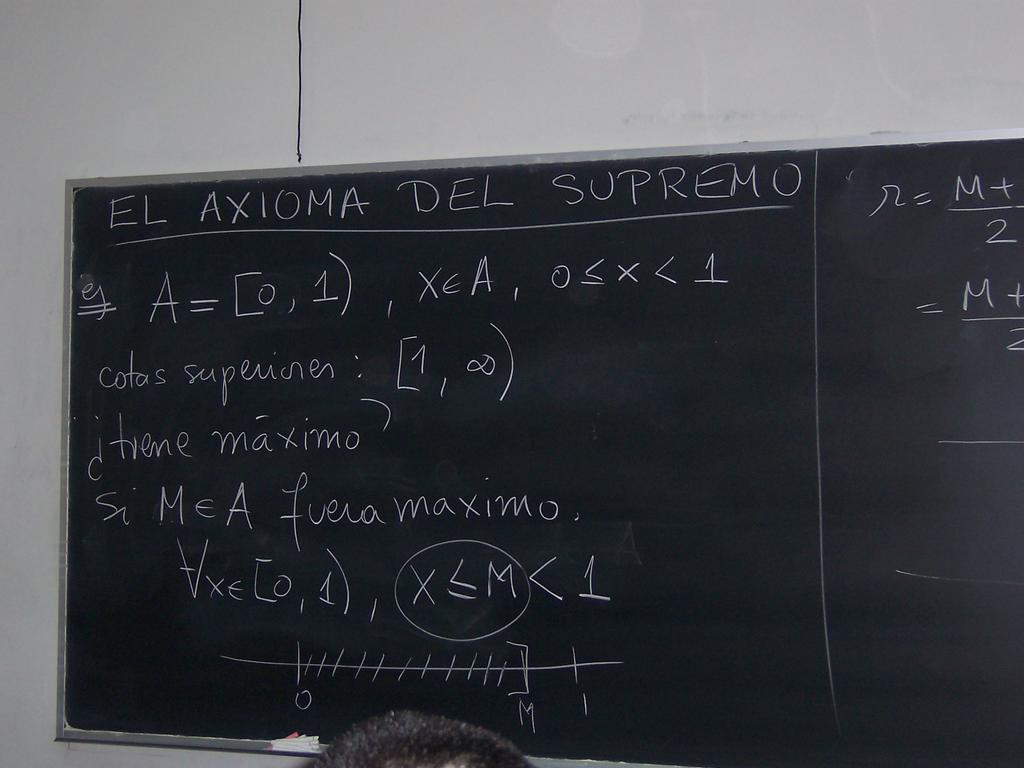 EL AXIOMA DEL SUPREMO
ej A = [0, 1), x∈A, 0 ≤ x < 1
cotas superiores: [1, ∞)
¿tiene máximo?
Si M∈A fuera maximo.
∀x∈[0, 1), x ≤ M < 1
0 M 1
r = M+
2
= M+
2